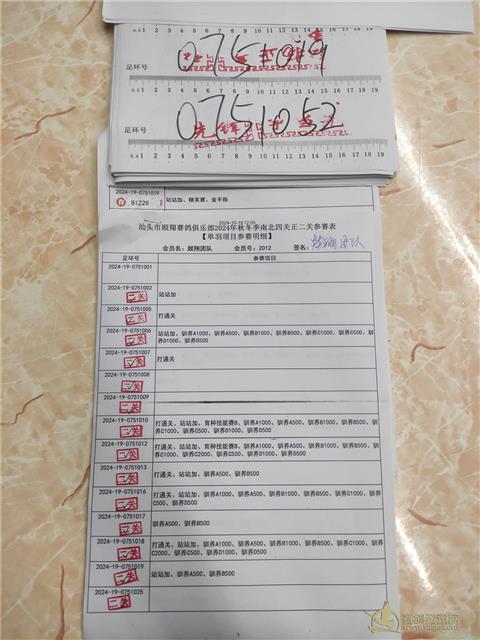 0751019
足环号
0.5 1 2 3 4 5 6 7 8 9 10 11 12 13 14 15 16 17 18 19
0751052
足环号
0.5 1 2 3 4 5 6 7 8 9 10 11 12 13 14 15 16 17 18 19
2024-19-0751019
81229 站站加、精英赛、金手指 1
2024-10-19 12:05
汕头市顺翔赛鸽俱乐部2024年秋冬季南北四关正二关参赛表
【单羽项目参赛明细】
会员名：颷翔团队 会员号：2012
足环号 参赛项目
2024-19-0751001
2024-19-0751002
二关 站站加
2024-19-0751005
二关 打通关
2024-19-0751006
二关 站站加、驯养A1000、驯养A500、驯养B1000、驯养B500、驯养C1000、驯养C500、驯
养D1000、驯养D500
2024-19-0751007
二关 打通关
2024-19-0751008
二关
2024-19-0751009
二关
2024-19-0751010
二关 打通关、站站加、育种技能赛B、驯养A1000、驯养A500、驯养B1000、驯养B500、驯
养C1000、驯养C500、驯养D1000、驯养D500
2024-19-0751012
二关 打通关、站站加、育种技能赛B、驯养A1000、驯养A500、驯养B1000、驯养B500、驯
养C1000、驯养C2000、驯养C500、驯养D1000、驯养D500
2024-19-0751013
二关 打通关、站站加、驯养A500、驯养B500
2024-19-0751016
二关 打通关、站站加、驯养A1000、驯养A500、驯养B1000、驯养B500、驯养C1000、驯养
C500、驯养D500
2024-19-0751017
二关 驯养A500、驯养B500
2024-19-0751018
二关 打通关、站站加、驯养A1000、驯养A500、驯养B1000、驯养B500、驯养C1000、驯养
C2000、驯养C500、驯养D1000、驯养D500
2024-19-0751019
二关 站站加、驯养A500、驯养B500
2024-19-0751025
二关